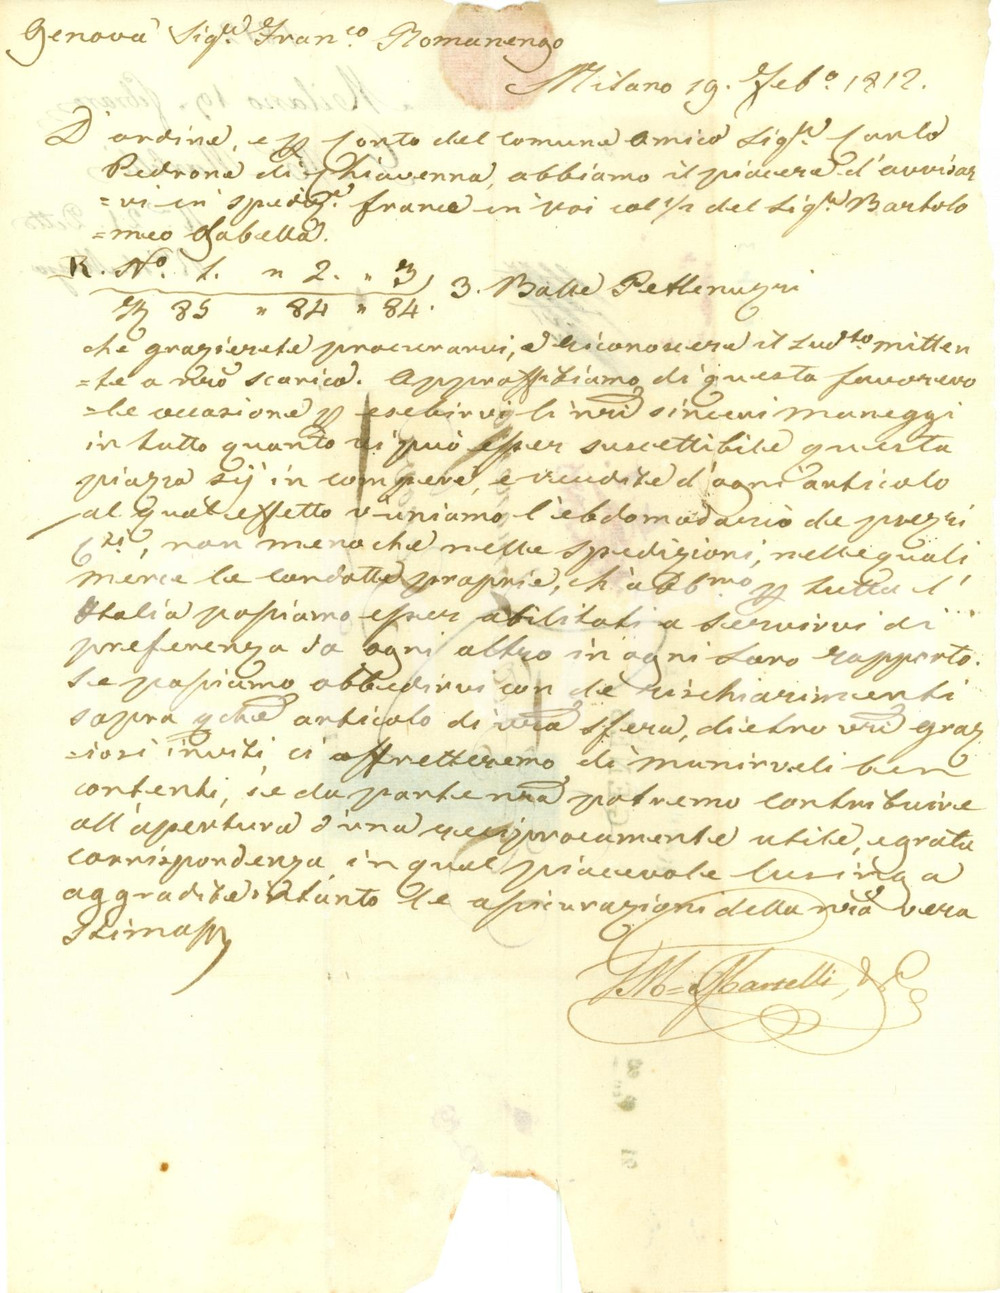 Genova Sig.r Fran.co Romanengo
Milano 19. Feb.o 1812.
D'ordine, e p Conto del Comune Amico Sig.r Carlo
Pedrone di Chiavenna, abbiamo il piacere d'avvisar
=vi in spediz.e franca in Voi col ½ del Sig.r Bartolo
=meo Gabella.
R. No. 1. " 2. " 3
85 " 84 " 84. 3. Balle Pettenuzzi
che grazierete procurarvi, e riconoscere il sud.to mitten
=te a vro scarico. Approfittiamo di questa favorevo
=le occasione p esebirvi li nri sinceri maneggi
in tutto quanto vi può esser suscettibile questa
piazza sij in compere, e vendite d'ogni articolo
al qual effetto v'uniamo l'ebdomadario de prezzi
C.ti, non meno che nelle spedizioni, nelle quali
mercè le condotte proprie, ch'abb.mo p tutta l'
Italia possiamo esser abilitati a servirvi di
preferenza da ogni altro in ogni loro rapporto.
Se possiamo obbedirvi con de rischiarimenti
sopra qche articolo di vra sfera, dietro vri graz
=iosi inviti, ci affretteremo di munirveli ben
contenti, se da parte nra potremo contribuire
all'apertura d'una reciprocamente utile, e grata
corrispondenza, in qual piacevole lusinga
aggradite intanto le assicurazioni della nra vera
Stima
Martelli, &